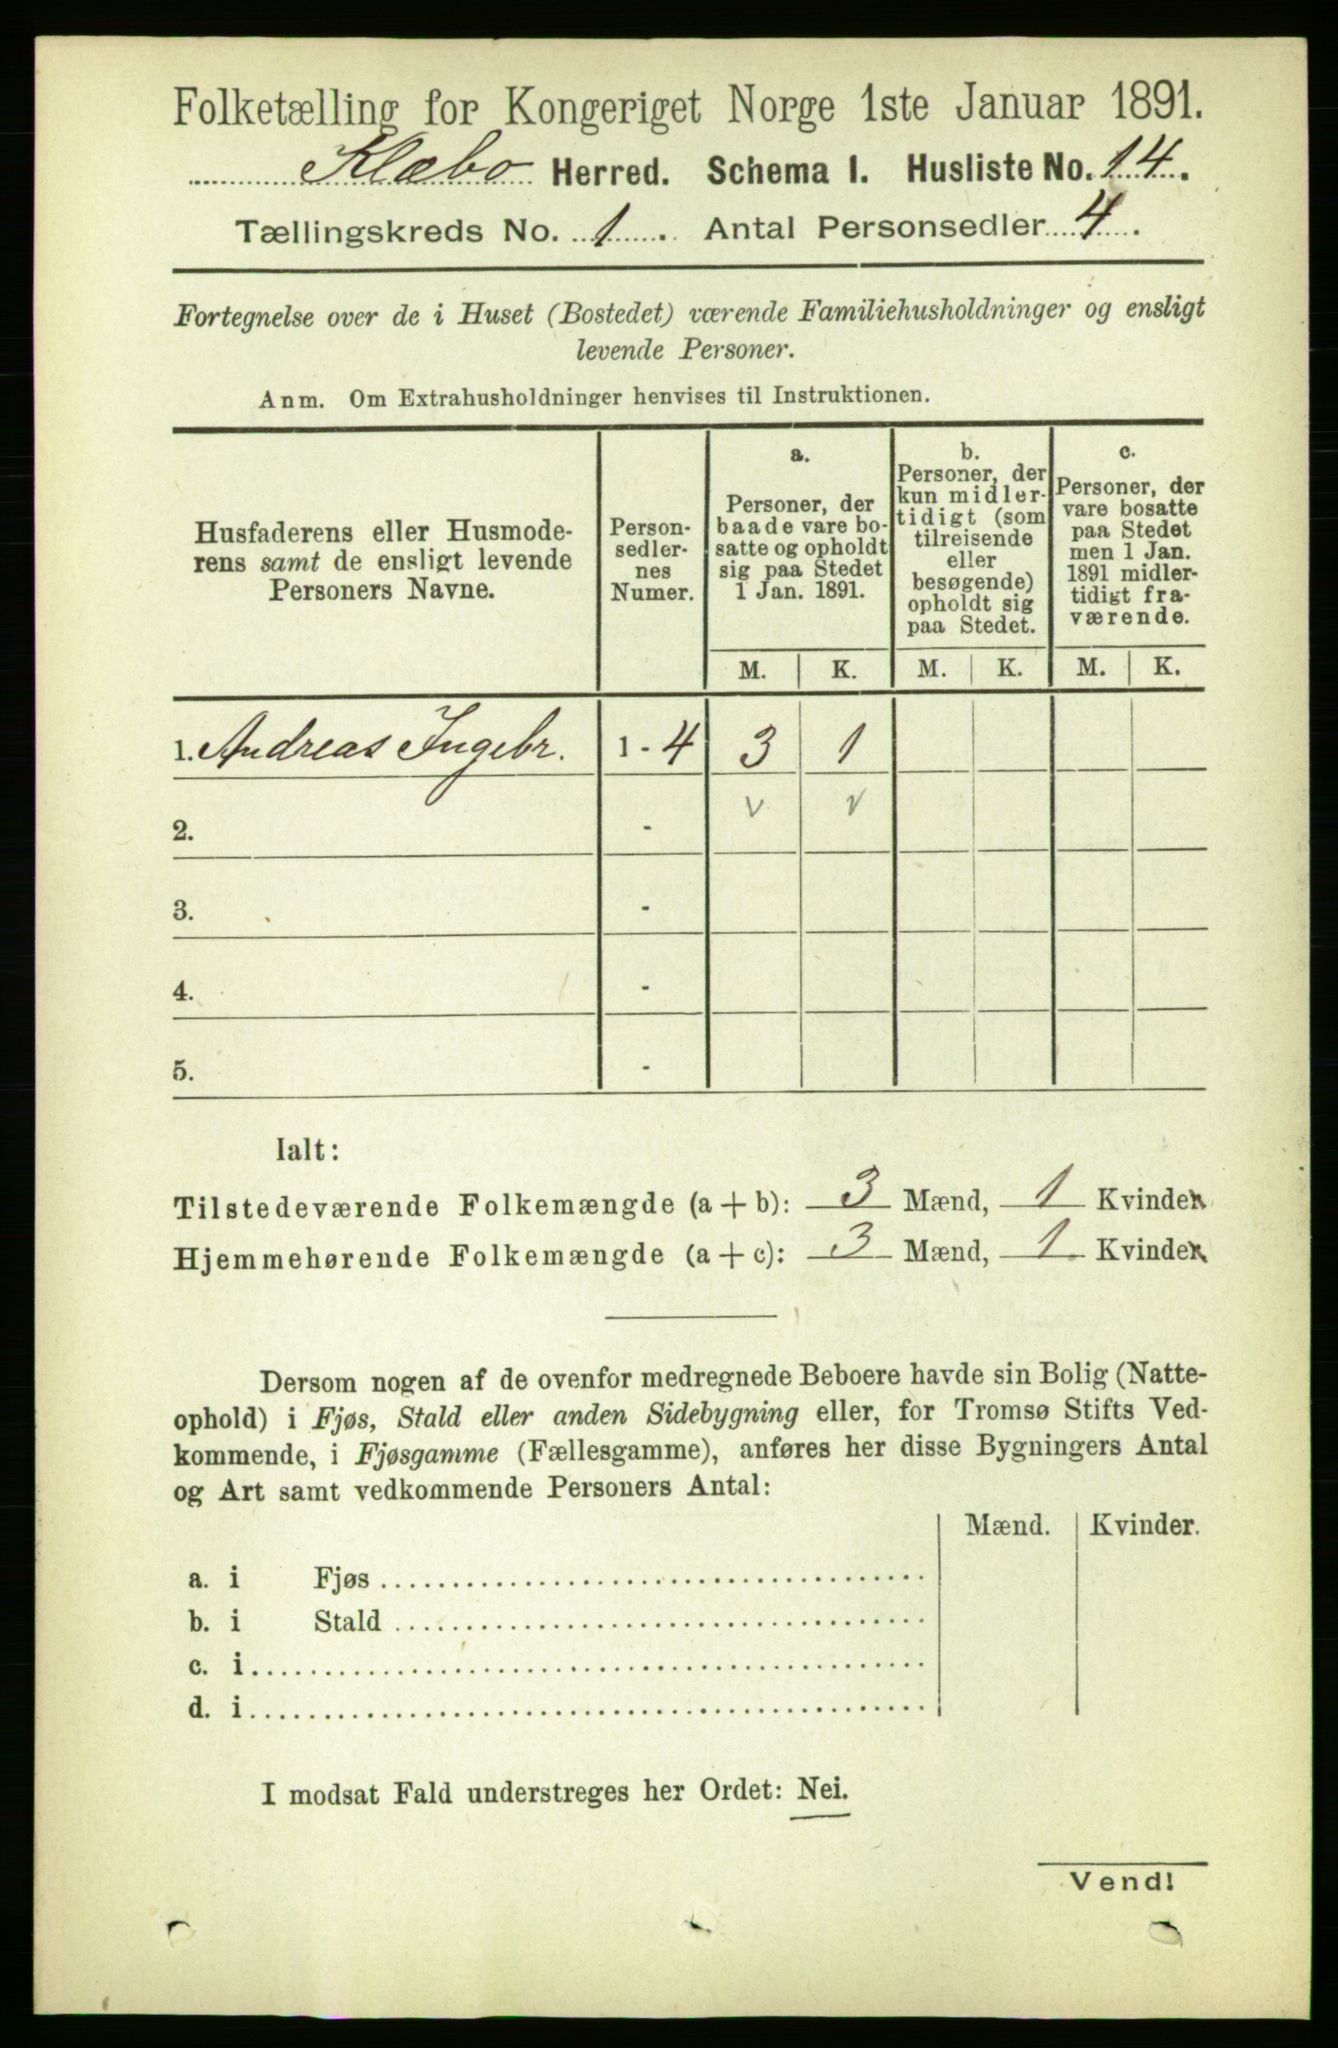 Folketælling for Kongeriget Norge 1ste Januar 1891.
Klæbo Herred. Schema I. Husliste No. 14.
Tællingskreds No. 1. Antal Personsedler 4.
Fortegnelse over de i Huset (Bostedet) værende Familiehusholdninger og ensligt
levende Personer.
Anm. Om Extrahusholdninger henvises til Instruktionen.
Husfaderens eller Husmode-
rens samt de ensligt levende
Personers Navne.
Person-
sedler-
nes
Numer.
a.
Personer, der
baade vare bo-
satte og opholdt
sig paa Stedet
1 Jan. 1891.
b.
Personer, der
kun midler-
tidigt (som
tilreisende
eller
besøgende)
opholdt sig
paa Stedet.
c.
Personer, der
vare bosatte
paa Stedet
men 1 Jan.
1891 midler-
tidigt fra-
værende.
M. K. M. K. M. K.
1. Andreas Ingebr. 1 - 4 3 1
2. - v v
3. -
4. -
5. -
Ialt:
Tilstedeværende Folkemængde (a + b): 3 Mænd, 1 Kvinder
Hjemmehørende Folkemængde (a + c): 3 Mænd, 1 Kvinder
Dersom nogen af de ovenfor medregnede Beboere havde sin Bolig (Natte-
ophold) i Fjøs, Stald eller anden Sidebygning eller, for Tromsø Stifts Ved-
kommende, i Fjøsgamme (Fællesgamme), anføres her disse Bygningers Antal
og Art samt vedkommende Personers Antal:
Mænd. Kvinder.
a. i Fjøs
b. i Stald
c. i
d. i
I modsat Fald understreges her Ordet: Nei.
Vend!